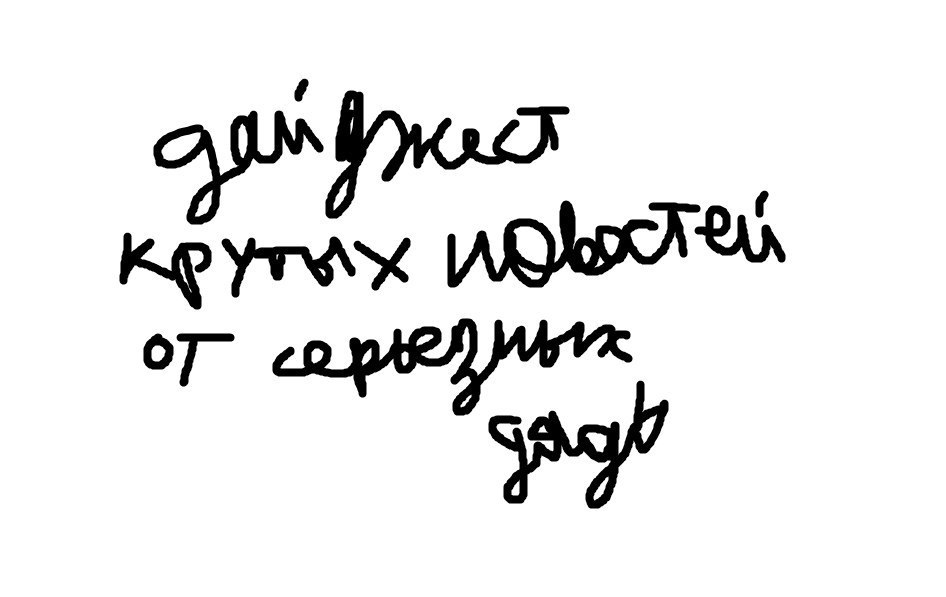 дайджест
крутых новостей
от серьезных
дядь